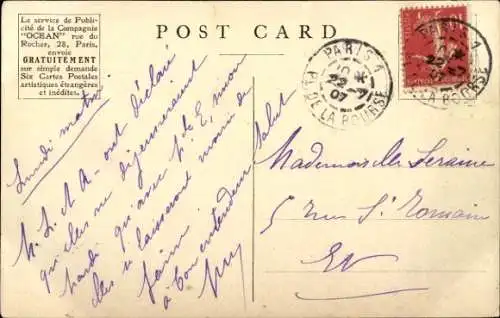 Le service de Publi-
cité de la Compagnie
"OCEAN" rue du
Rocher, 28, Paris,
envoie
GRATUITEMENT
sur simple demande
Six Cartes Postales
artistiques étrangères
et inédites.
POST CARD
PARIS 1
22
07
PL. DE LA BOURSE
PARIS 1
22
LA BOURSE
Lundi matin
ont déclaré
qu'elles ne déjeuneraient
mardi qu'avec
elles se laisseront mourir de
faim
à bon entendeur salut
Mademoiselle Seraine
5 rue St Romain
EV